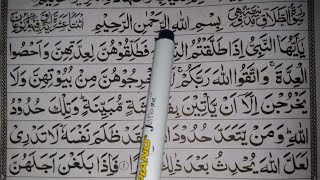 سُوْرَةُ الطَّلَاقِ مَدَنِيَّةٌ بِسْمِ اللهِ الرَّحْمٰنِ الرَّحِيْمِ
يٰۤاَيُّهَا النَّبِيُّ اِذَا طَلَّقْتُمُ فَطَلِّقُوْهُنَّ لِعِدَّتِهِنَّ وَاَحْصُوا
الْعِدَّةَ ۚ وَاتَّقُوا اللهَ رَبَّكُمْ ۚ مِنْۢ بُيُوْتِهِنَّ وَلَا
يَخْرُجْنَ اِلَّاۤ اَنْ يَّاْتِيْنَ مُّبَيِّنَةٍ ؕ وَتِلْكَ حُدُوْدُ
اللهِ ؕ وَمَنْ يَّتَعَدَّ حُدُوْدَ ظَلَمَ نَفْسَهٗ ؕ لَا تَدْرِيْ
لَعَلَّ اللهَ يُحْدِثُ بَعْدَ ذٰلِكَ فَاِذَا بَلَغْنَ اَجَلَهُنَّ